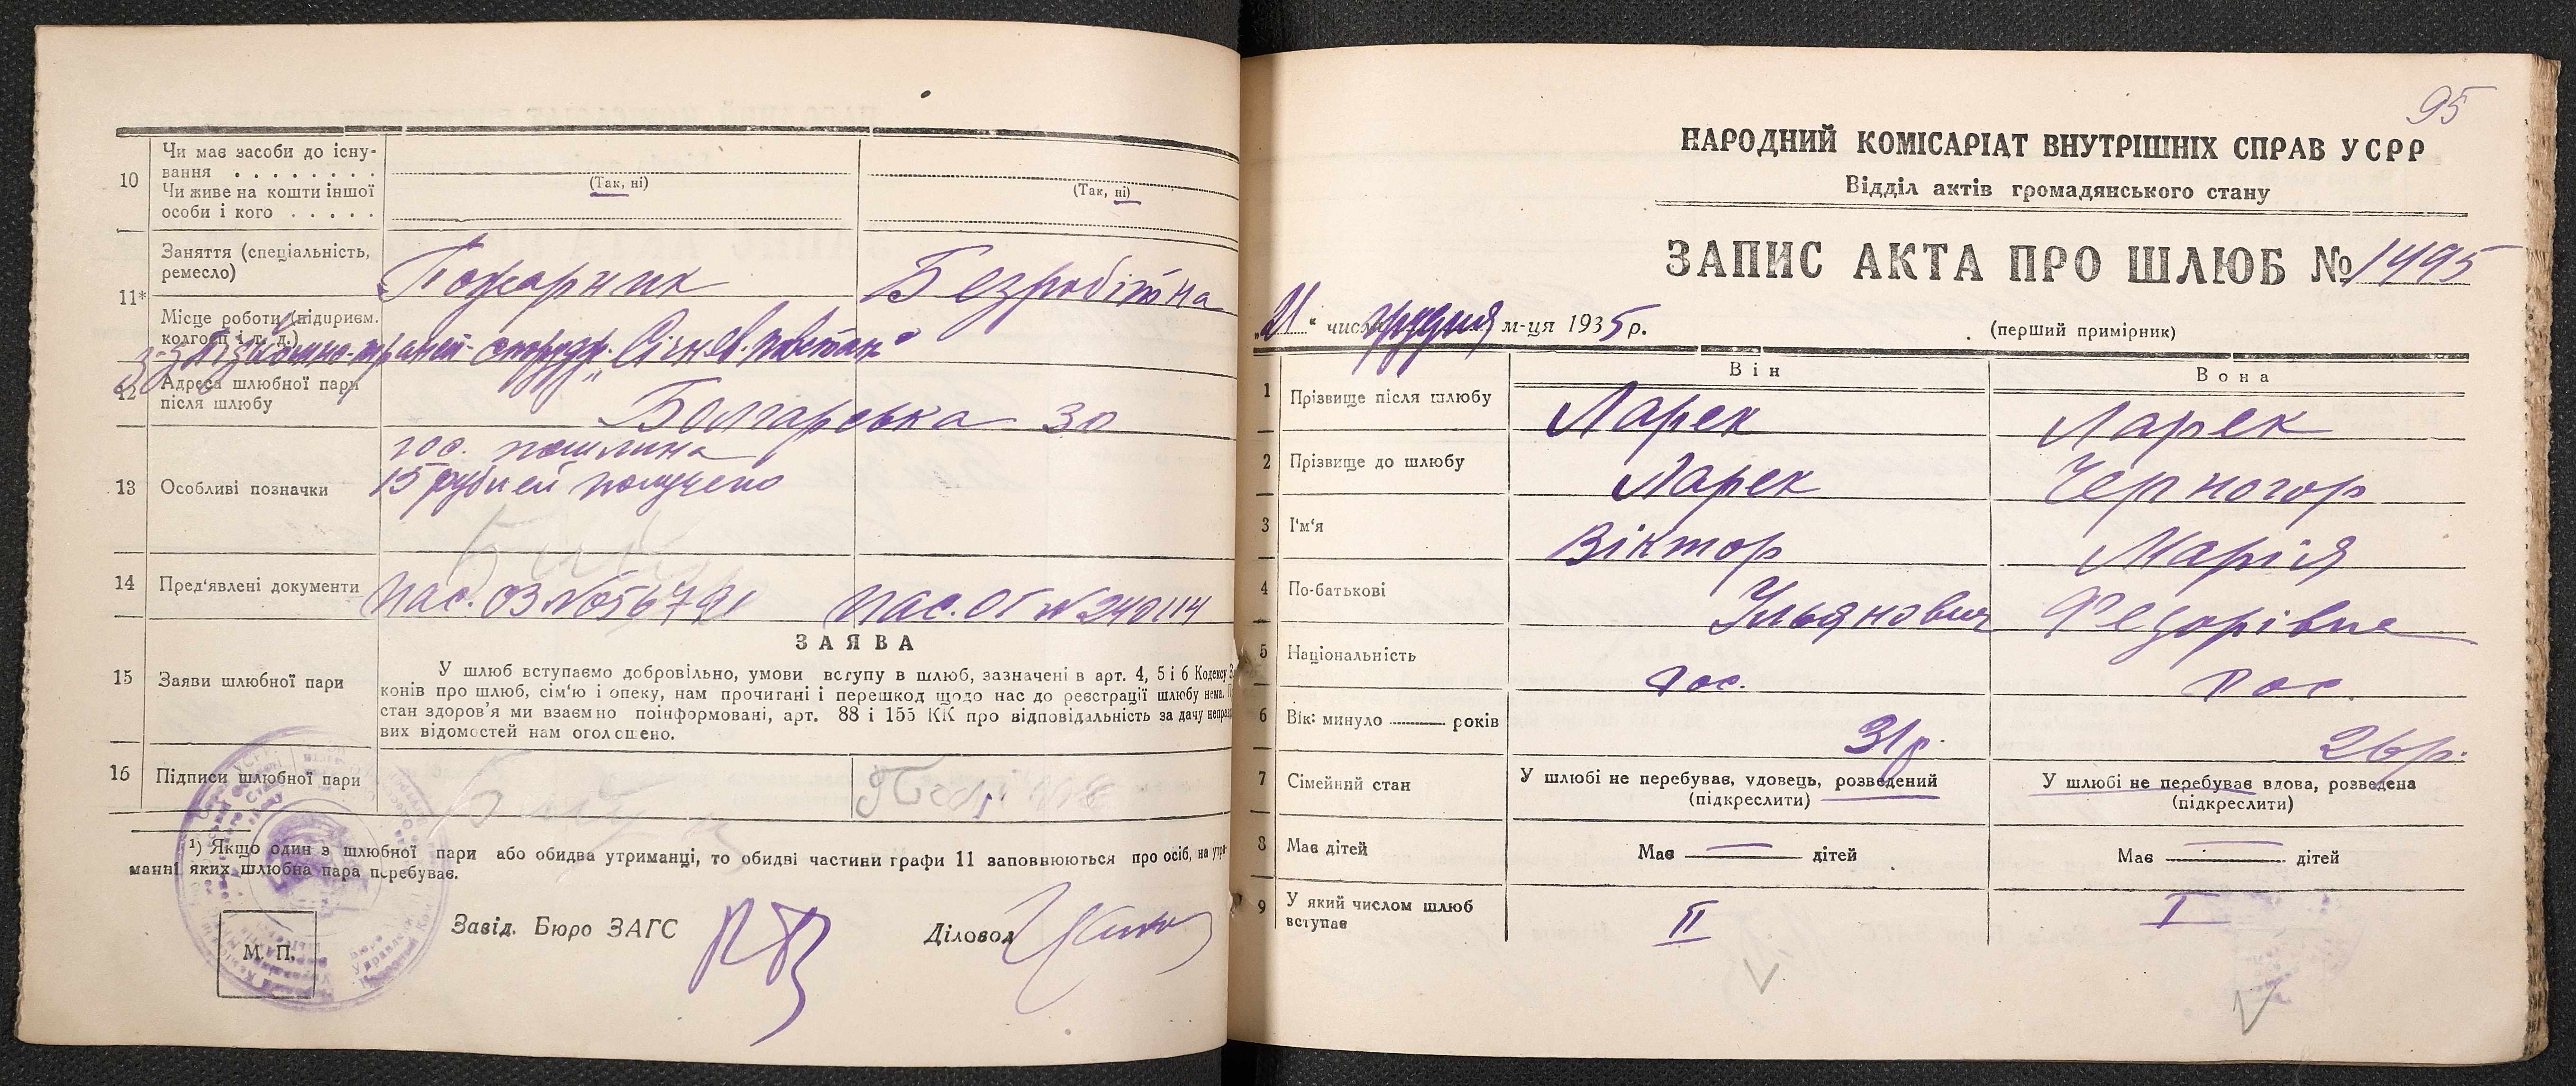 10
Чи має засоби до існу-
вання . . . . . . . .
Чи живе на кошти іншої
особи і кого . . . . .
(Так, ні)
(Так, ні)
11*
Заняття (спеціальність,
ремесло)
Пожарник
Безробітна
Місце роботи (підприєм.
колгосп і т. д.)
"Січнев. повстан"
12
Адреса шлюбної пари
після шлюбу
Болгарська 30
13
Особливі позначки
гос. пошлина
15 рублей получено
14
Пред'явлені документи
Пас. ОЗ №
Пас. ОГ № 240114
15
Заяви шлюбної пари
ЗАЯВА
У шлюб вступаємо добровільно, умови вступу в шлюб, зазначені в арт. 4, 5 і 6 Кодексу За
конів про шлюб, сім'ю і опеку, нам прочитані і перешкод щодо нас до реєстрації шлюбу нема.
стан здоров'я ми взаємно поінформовані, арт. 88 і 155 КК про відповідальність за дачу неправд
вих відомостей нам оголошено.
16
Підписи шлюбної пари
¹) Якщо один з шлюбної пари або обидва утриманці, то обидві частини графи 11 заповнюються про осіб, на утри-
манні яких шлюбна пара перебуває.
М. П.
Завід. Бюро ЗАГС
Діловод
95
НАРОДНИЙ КОМІСАРІАТ ВНУТРІШНІХ СПРАВ УСРР
Відділ актів громадянського стану
ЗАПИС АКТА ПРО ШЛЮБ № 1495
„21" числа грудня м-ця 1935 р.
(перший примірник)
Він
Вона
1
Прізвище після шлюбу
Ларек
Ларек
2
Прізвище до шлюбу
Ларек
Черногор
3
І'м'я
Віктор
Марія
4
По-батькові
Ульянович
Федорівна
5
Національність
рос.
рос.
6
Вік: минуло ——— років
31р.
26р.
7
Сімейний стан
У шлюбі не перебував, удовець, розведений
(підкреслити)
У шлюбі не перебуває вдова, розведена
(підкреслити)
8
Має дітей
Має ——— дітей
Має ——— дітей
9
У який числом шлюб
вступає
II
I